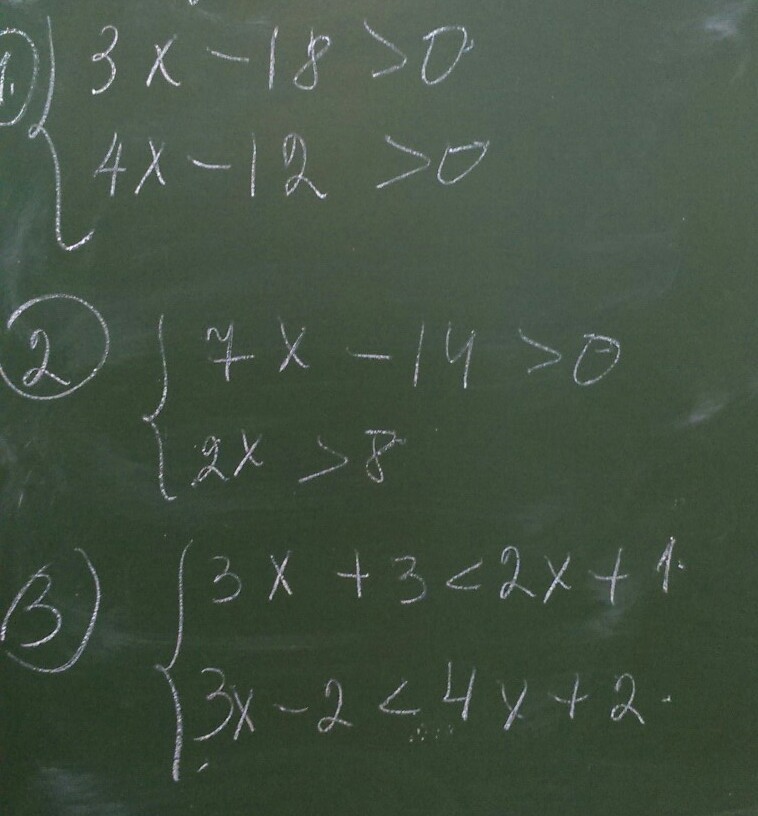 1. 3x - 18 > 0
4x - 12 > 0
2 7x - 14 > 0
2x > 8
3) 3x + 3 < 2x + 1.
3x - 2 < 4x + 2.